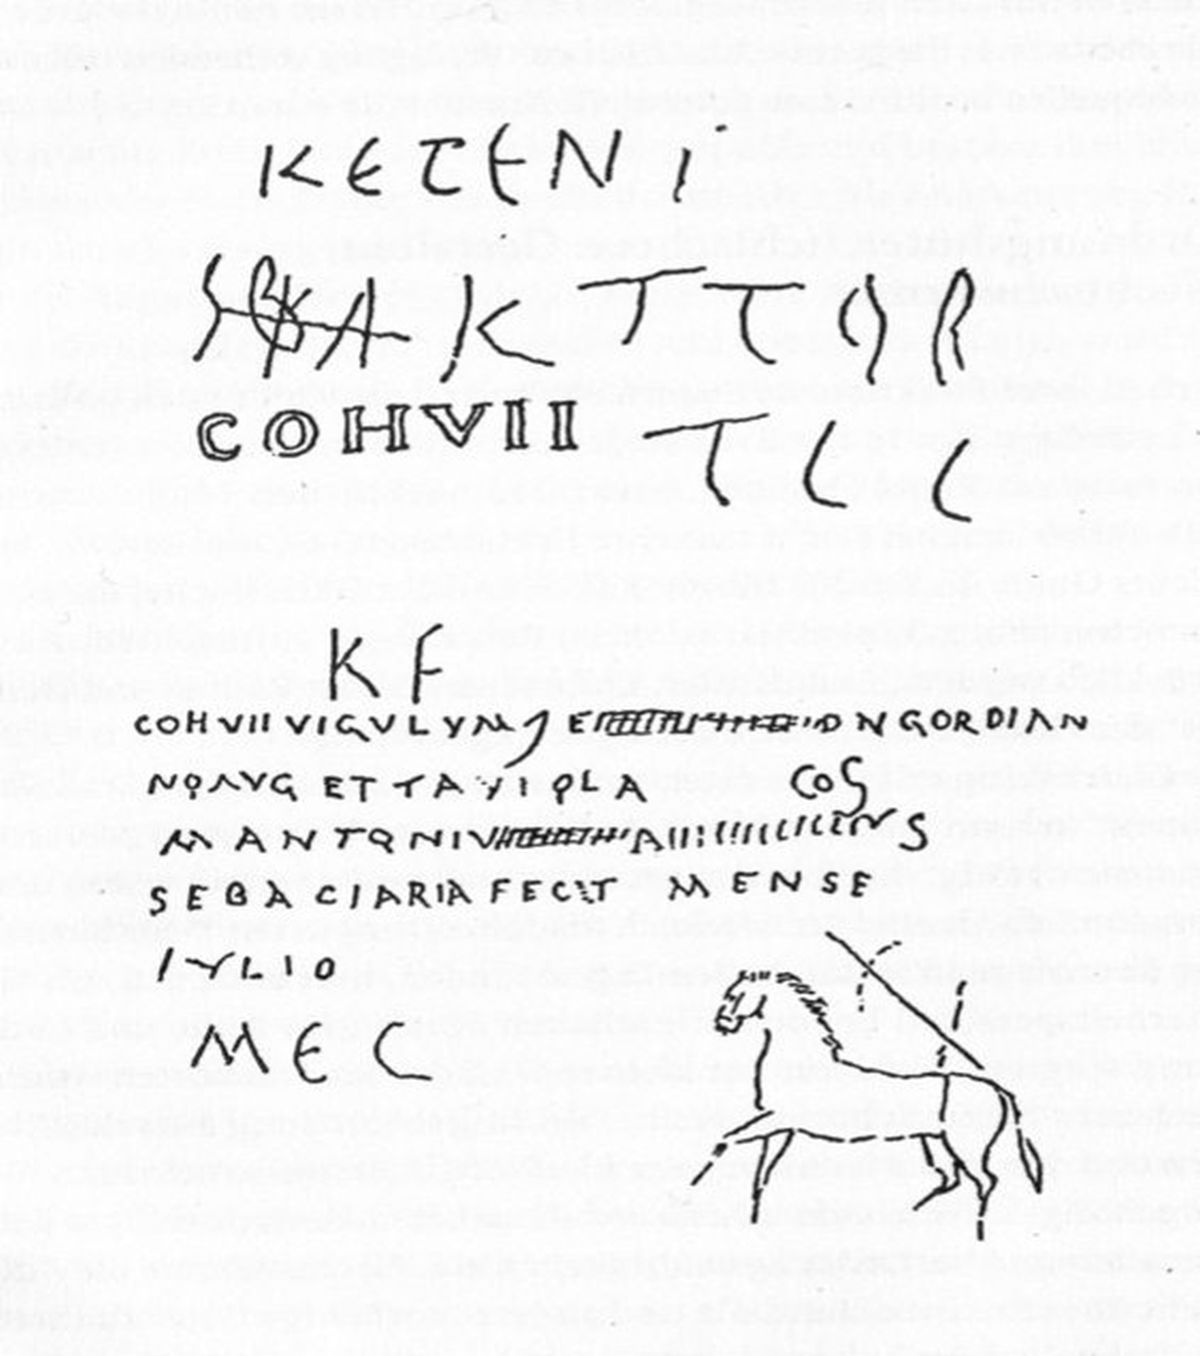 KETENI
COHVII TLC
KF
COHVII VIGVLVM E DNGORDIAN
NOAVG ETTAVIOLA COS
MANTONIV VS
SEBACIARIAFECIT MENSE
IVLIO
MEC